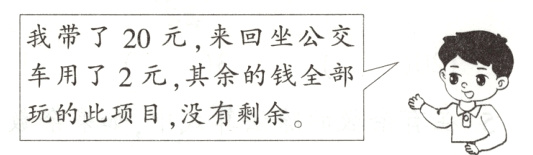 我带了 20 元,来回坐公交
车用了 2 元,其余的钱全部
玩的此项目,没有剩余。